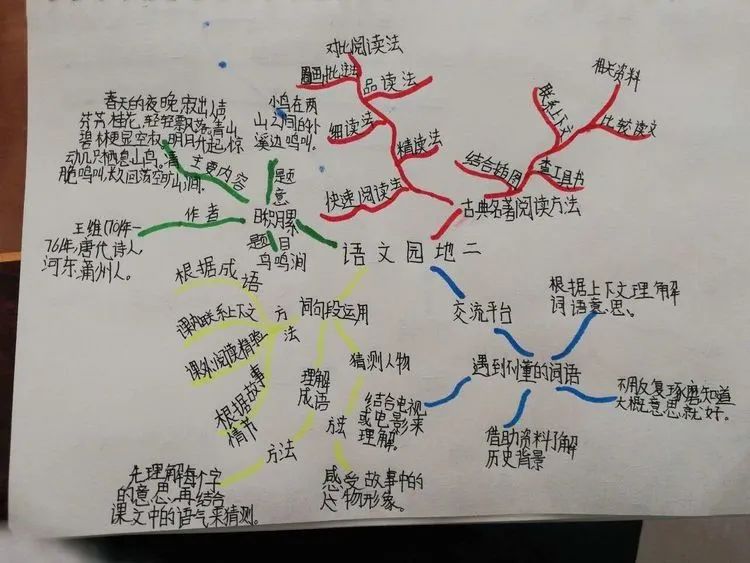 语文园地二
古典名著阅读方法
对比阅读法
圈画批注法
品读法
细读法
精读法
快速阅读法
相关资料
联系上下文
比较读文
结合插图
查工具书
日积月累
题意
小鸟在两
山之间的小
溪边鸣叫。
主要内容
春天的夜晚,寂出人声
芬芳桂花,轻轻飘落,青山
碧林更显空寂,明月升起,惊
动几只栖息山鸟。清
脆鸣叫,长久回荡空旷山涧。
作者
王维(701年-
761年),唐代诗人,
河东蒲州人。
题目
鸟鸣涧
词句段运用
方法
根据成语
课内联系上下文
课外阅读精验
根据故事
情节
理解
成语
方法
先理解每个字
的意思,再结合
课文中的语气来猜测。
猜测人物
方法
结合电视
或电影来
理解。
感受故事中的
人物形象。
交流平台
遇到不懂的词语
根据上下文理解
词语意思。
不用反复琢磨,知道
大概意思就好。
借助资料了解
历史背景